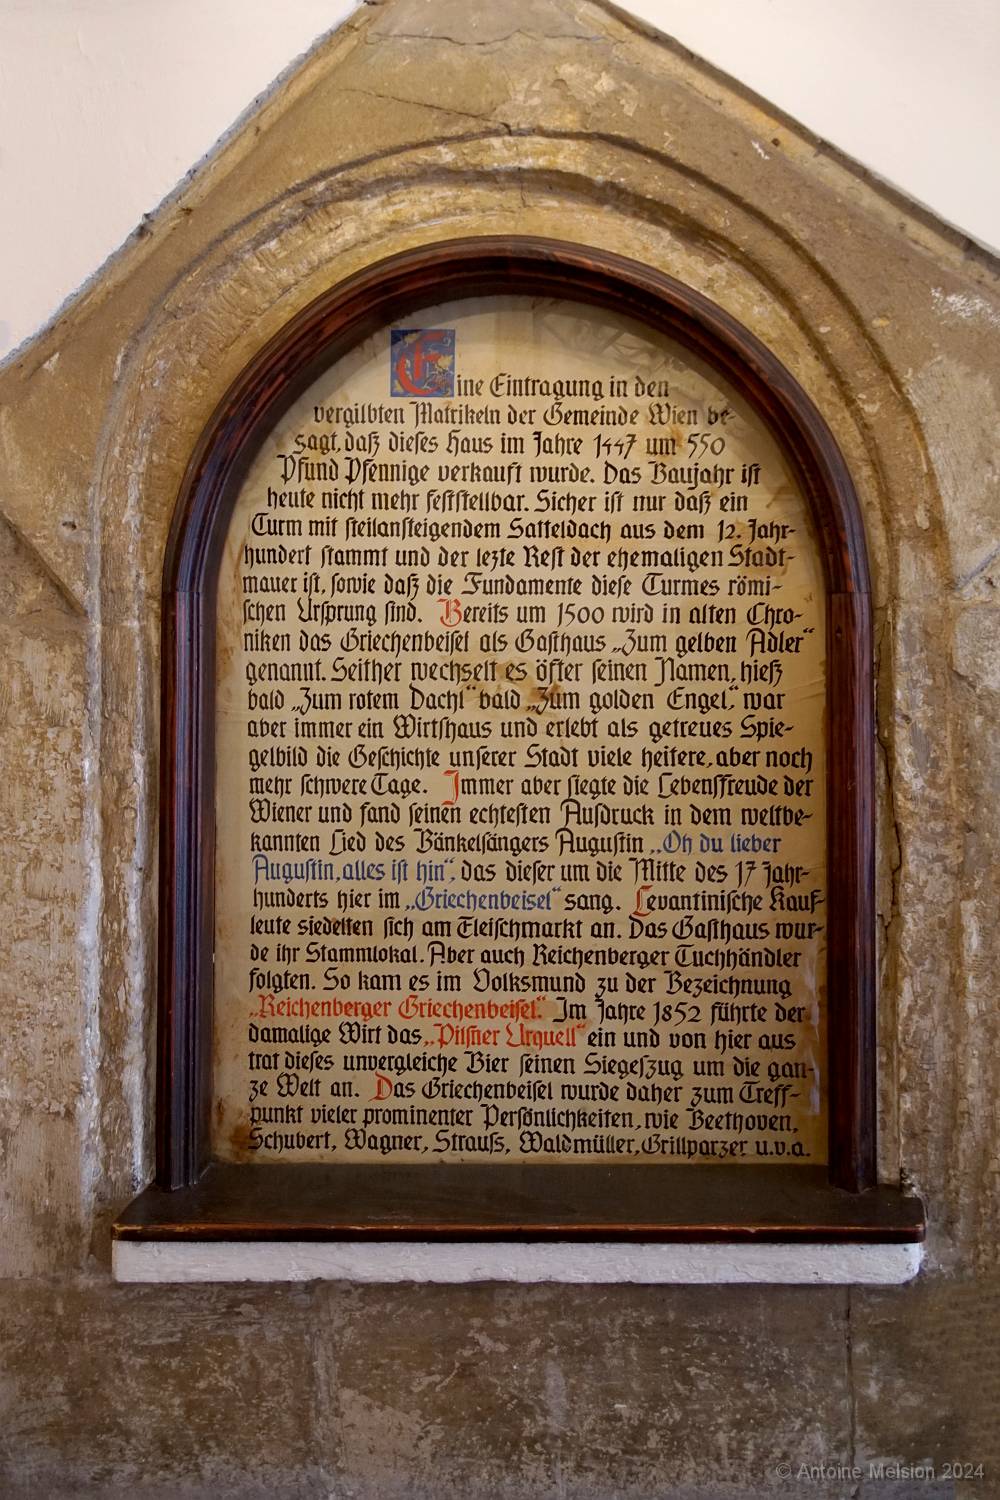 Eine Eintragung in den
vergilbten Matrikeln der Gemeinde Wien be-
sagt, daß dieses Haus im Jahre 1447 um 550
Pfund Pfennige verkauft wurde. Das Baujahr ist
heute nicht mehr feststellbar. Sicher ist nur daß ein
Turm mit steilansteigendem Satteldach aus dem 12. Jahr-
hundert stammt und der lezte Rest der ehemaligen Stadt-
mauer ist, sowie daß die Fundamente diese Turmes römi-
schen Ursprung sind. Bereits um 1500 wird in alten Chro-
niken das Griechenbeisel als Gasthaus „Zum gelben Adler“
genannt. Seither wechselt es öfter seinen Namen, hieß
bald „Zum rotem Dachl“ bald „Zum golden Engel“, war
aber immer ein Wirtshaus und erlebt als getreues Spie-
gelbild die Geschichte unserer Stadt viele heitere, aber noch
mehr schwere Tage. Immer aber siegte die Lebensfreude der
Wiener und fand seinen echtesten Ausdruck in dem weltbe-
kannten Lied des Bänkelsängers Augustin „Oh du lieber
Augustin, alles ist hin“, das dieser um die Mitte des 17 Jahr-
hunderts hier im „Griechenbeisel“ sang. Levantinische Kauf-
leute siedelten sich am Fleischmarkt an. Das Gasthaus wur-
de ihr Stammlokal. Aber auch Reichenberger Tuchhändler
folgten. So kam es im Volksmund zu der Bezeichnung
„Reichenberger Griechenbeisel“. Im Jahre 1852 führte der
damalige Wirt das „Pilsner Urquell“ ein und von hier aus
trat dieses unvergleiche Bier seinen Siegeszug um die gan-
ze Welt an. Das Griechenbeisel wurde daher zum Treff-
punkt vieler prominenter Persönlichkeiten, wie Beethoven,
Schubert, Wagner, Strauss, Waldmüller, Grillparzer u.v.a.
© Antoine Melsion 2024